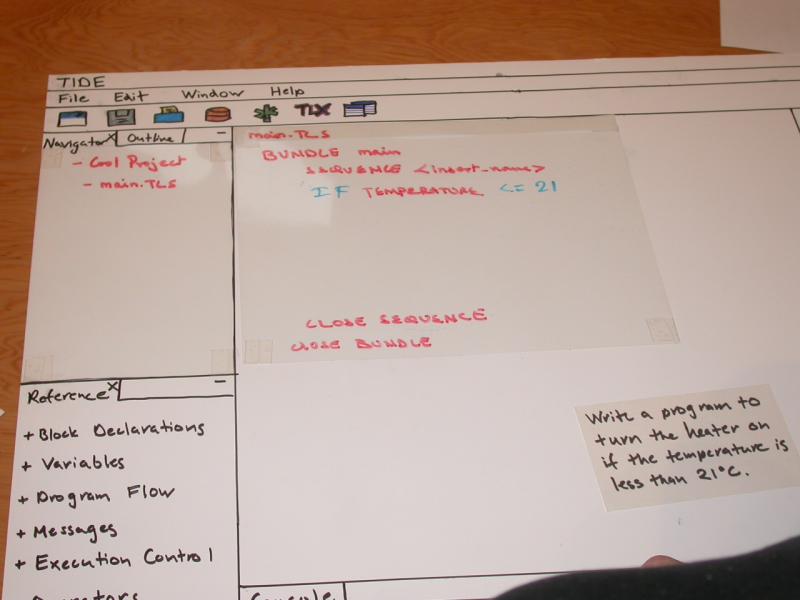 TIDE
File Edit Window Help
TLX
Navigator X Outline -
- Cool Project
- main.TLS
main.TLS
BUNDLE main
SEQUENCE <insert-name>
IF TEMPERATURE <= 21
CLOSE SEQUENCE
CLOSE BUNDLE
Reference X -
+ Block Declarations
+ Variables
+ Program Flow
+ Messages
+ Execution Control
Operators
Console
Write a program to
turn the heater on
if the temperature is
less than 21°C.